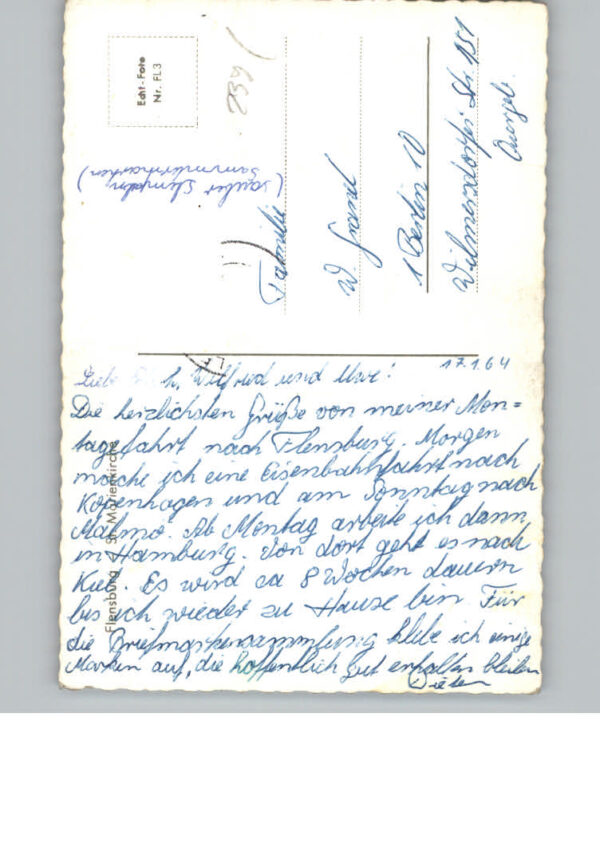 Echt-Foto
Nr. FL3
239
(sauber Stempeln
Sammlerkarten)
Familie
W.
1 Berlin 10
Wilmersdorfer Str. 151
Quergeb.
17.1.64
Wilfried und Uwe!
Die herzlichsten Grüße von meiner Mon=
tagefahrt nach Flensburg. Morgen
mache ich eine Eisenbahnfahrt nach
Kopenhagen und am Sonntag nach
Malmö. Ab Montag arbeite ich dann
in Hamburg. Von dort geht es nach
Kiel. Es wird ca 8 Wochen dauern
bis ich wieder zu Hause bin. Für
die Briefmarkensammlung klebe ich einige
Marken auf, die hoffentlich gut erhalten bleiben
Dieter
Flensburg St. Marienkirche